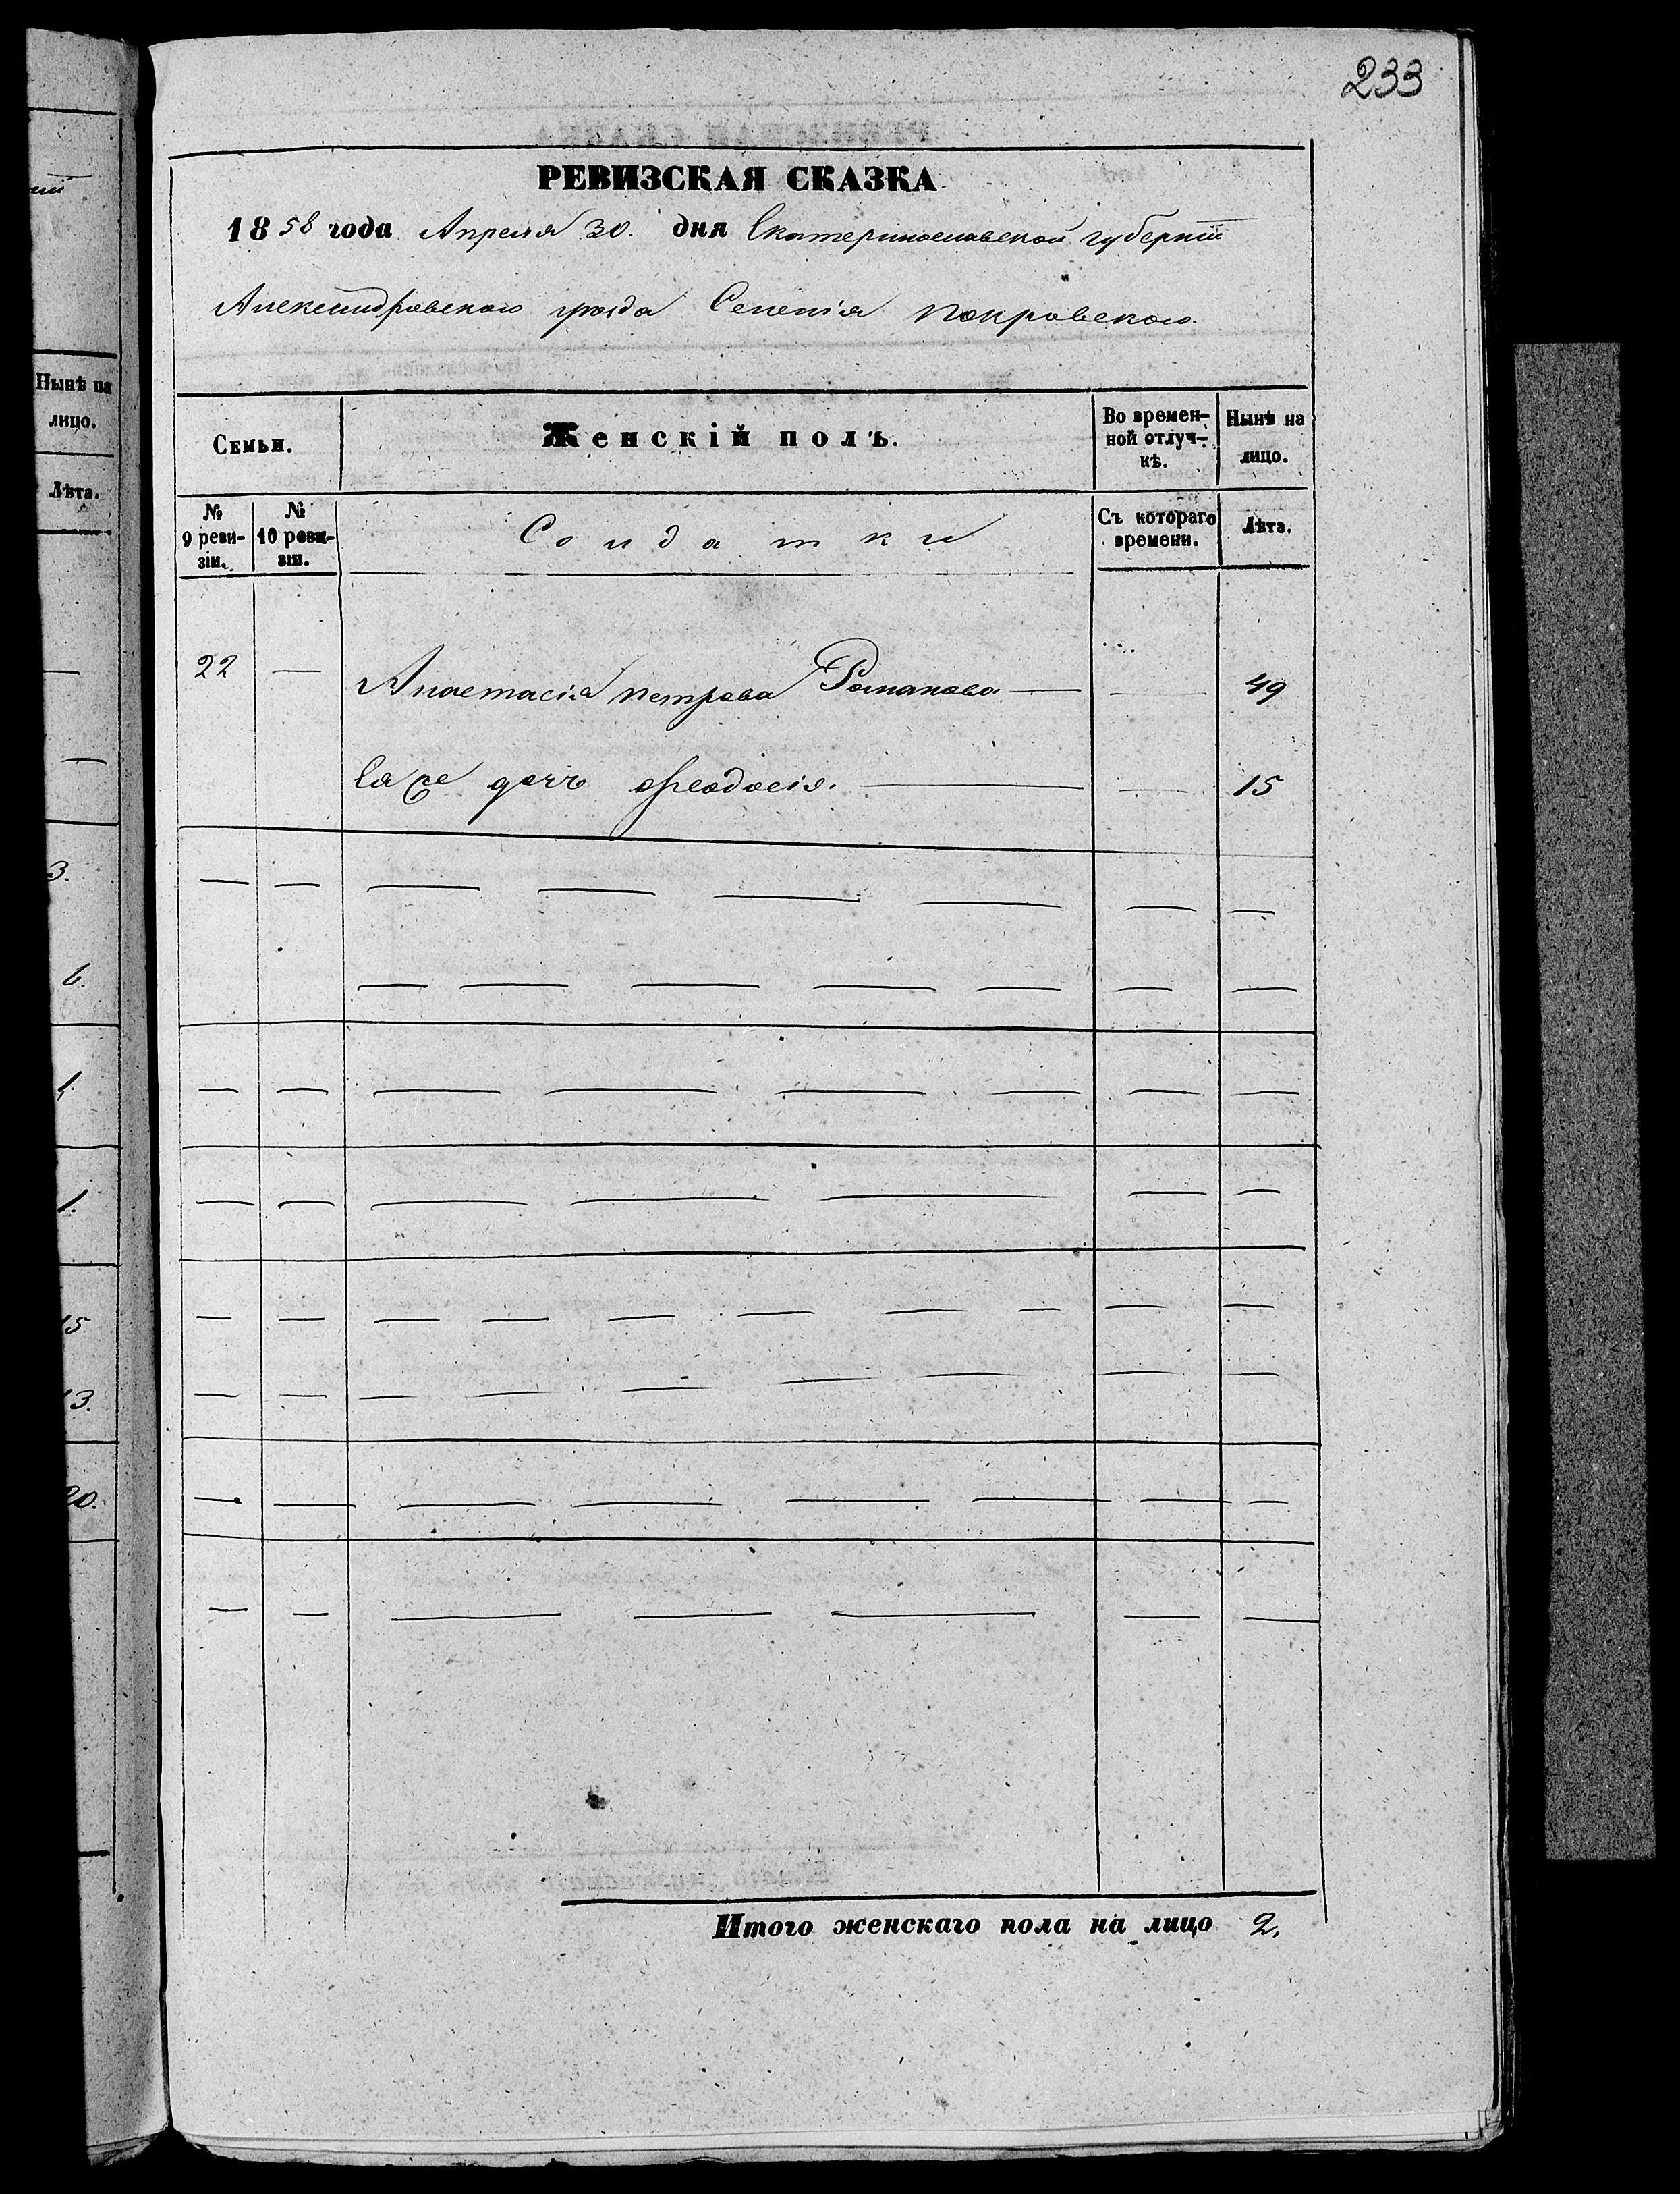 233
РЕВИЗСКАЯ СКАЗКА
1858 года Апреля 30. дня Екатеринославской губерніи
Александровского уезда Селенія Покровского
Семьи.
Женскій полъ.
Во времен-
ной отлуч-
кѣ.
Нынѣ на
лицо.
№
9 реви-
зіи.
№
10 реви-
зіи.
Солдатки
Съ котораго
времени.
Лѣта.
22 — Анастасія Петрова Романова — — 49
Ея же дочь Феодосія. — — 15
Итого женскаго пола на лицо 2.
Нынѣ на
лицо.
Лѣта.
3.
6.
1.
1.
15
13.
20.